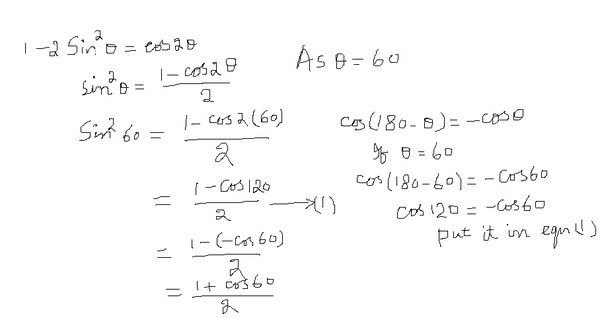 1-2 Sin²θ = cos2θ
sin²θ = (1-cos2θ)/2
Sin²60 = (1-cos2(60))/2
= (1-cos120)/2 →(1)
= (1-(-cos60))/2
= (1+cos60)/2
As θ=60
cos(180-θ)=-cosθ
If θ=60
cos(180-60)=-cos60
cos120=-cos60
put it in eqn(1)